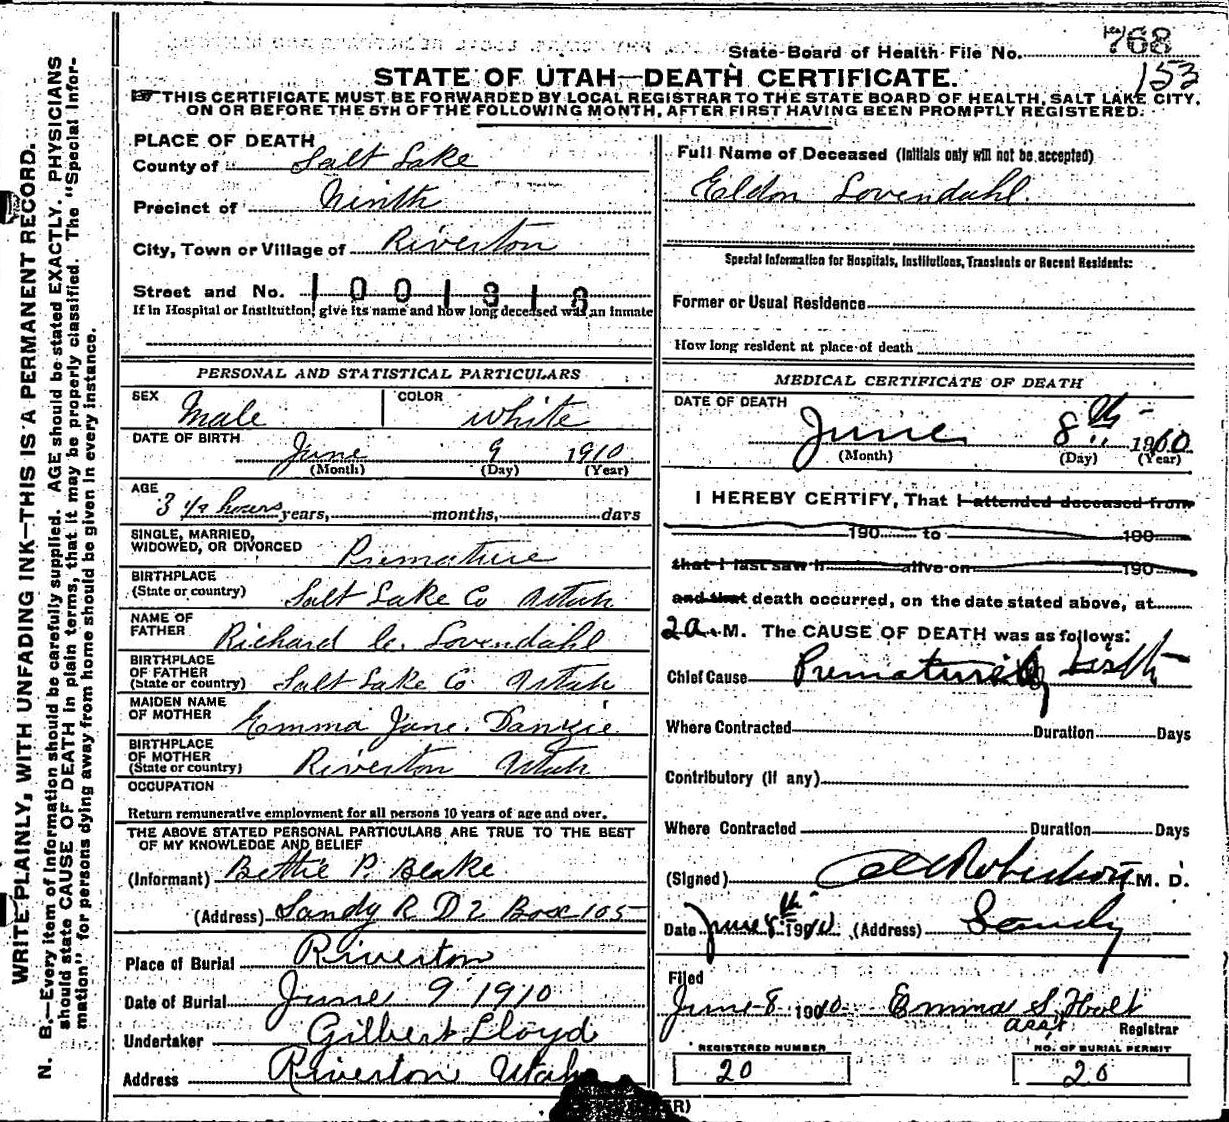 State Board of Health File No. 768
153
STATE OF UTAH—DEATH CERTIFICATE.
THIS CERTIFICATE MUST BE FORWARDED BY LOCAL REGISTRAR TO THE STATE BOARD OF HEALTH, SALT LAKE CITY,
ON OR BEFORE THE 5TH OF THE FOLLOWING MONTH, AFTER FIRST HAVING BEEN PROMPTLY REGISTERED.
WRITE PLAINLY, WITH UNFADING INK—THIS IS A PERMANENT RECORD.
N. B.—Every item of information should be carefully supplied. AGE should be stated EXACTLY. PHYSICIANS
should state CAUSE OF DEATH in plain terms, that it may be properly classified. The "Special Infor-
mation" for persons dying away from home should be given in every instance.
PLACE OF DEATH
County of Salt Lake
Precinct of Ninth
City, Town or Village of Riverton
Street and No. 1001318
If in Hospital or Institution, give its name and how long deceased was an inmate
PERSONAL AND STATISTICAL PARTICULARS
SEX Male COLOR White
DATE OF BIRTH June 9 1910
(Month) (Day) (Year)
AGE 3 1/2 hours years, months, days
SINGLE, MARRIED,
WIDOWED, OR DIVORCED Premature
BIRTHPLACE
(State or country) Salt Lake Co Utah
NAME OF
FATHER Richard C. Lovendahl
BIRTHPLACE
OF FATHER
(State or country) Salt Lake Co Utah
MAIDEN NAME
OF MOTHER Emma Jane Danzie
BIRTHPLACE
OF MOTHER
(State or country) Riverton Utah
OCCUPATION
Return remunerative employment for all persons 10 years of age and over.
THE ABOVE STATED PERSONAL PARTICULARS ARE TRUE TO THE BEST
OF MY KNOWLEDGE AND BELIEF
(Informant) Bettie P. Blake
(Address) Sandy R D 2 Box 105
Place of Burial Riverton
Date of Burial June 9 1910
Undertaker Gilbert Lloyd
Address Riverton Utah
Full Name of Deceased (Initials only will not be accepted)
Eldon Lovendahl.
Special Information for Hospitals, Institutions, Transients or Recent Residents:
Former or Usual Residence
How long resident at place of death
MEDICAL CERTIFICATE OF DEATH
DATE OF DEATH
June 8th 1910
(Month) (Day) (Year)
I HEREBY CERTIFY, That I attended deceased from
190 to 190
that I last saw h alive on 190
and that death occurred, on the date stated above, at
2 a. M. The CAUSE OF DEATH was as follows:
Chief Cause Premature birth
Where Contracted Duration Days
Contributory (if any)
Where Contracted Duration Days
(Signed) Robertson M. D.
Date June 8th 1910 (Address) Sandy
Filed
June 8 1910 Emma S. Holt
asst Registrar
REGISTERED NUMBER
20
NO. OF BURIAL PERMIT
20